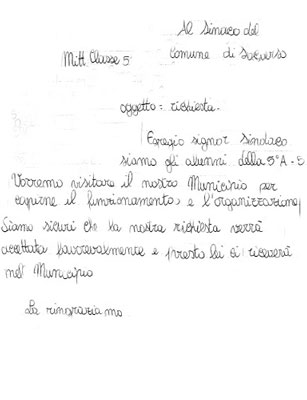 Al Sindaco del
Mitt. Classe 5 Comune di
oggetto: richiesta.
Egregio signor sindaco
siamo gli alunni della 5°A - B
Vorremo visitare il nostro Municipio per
capirne il funzionamento, e l'organizzazione
Siamo sicuri che la nostra richiesta verrà
accettata favorevolmente e presto lei ci riceverà
nel Municipio
La ringraziamo